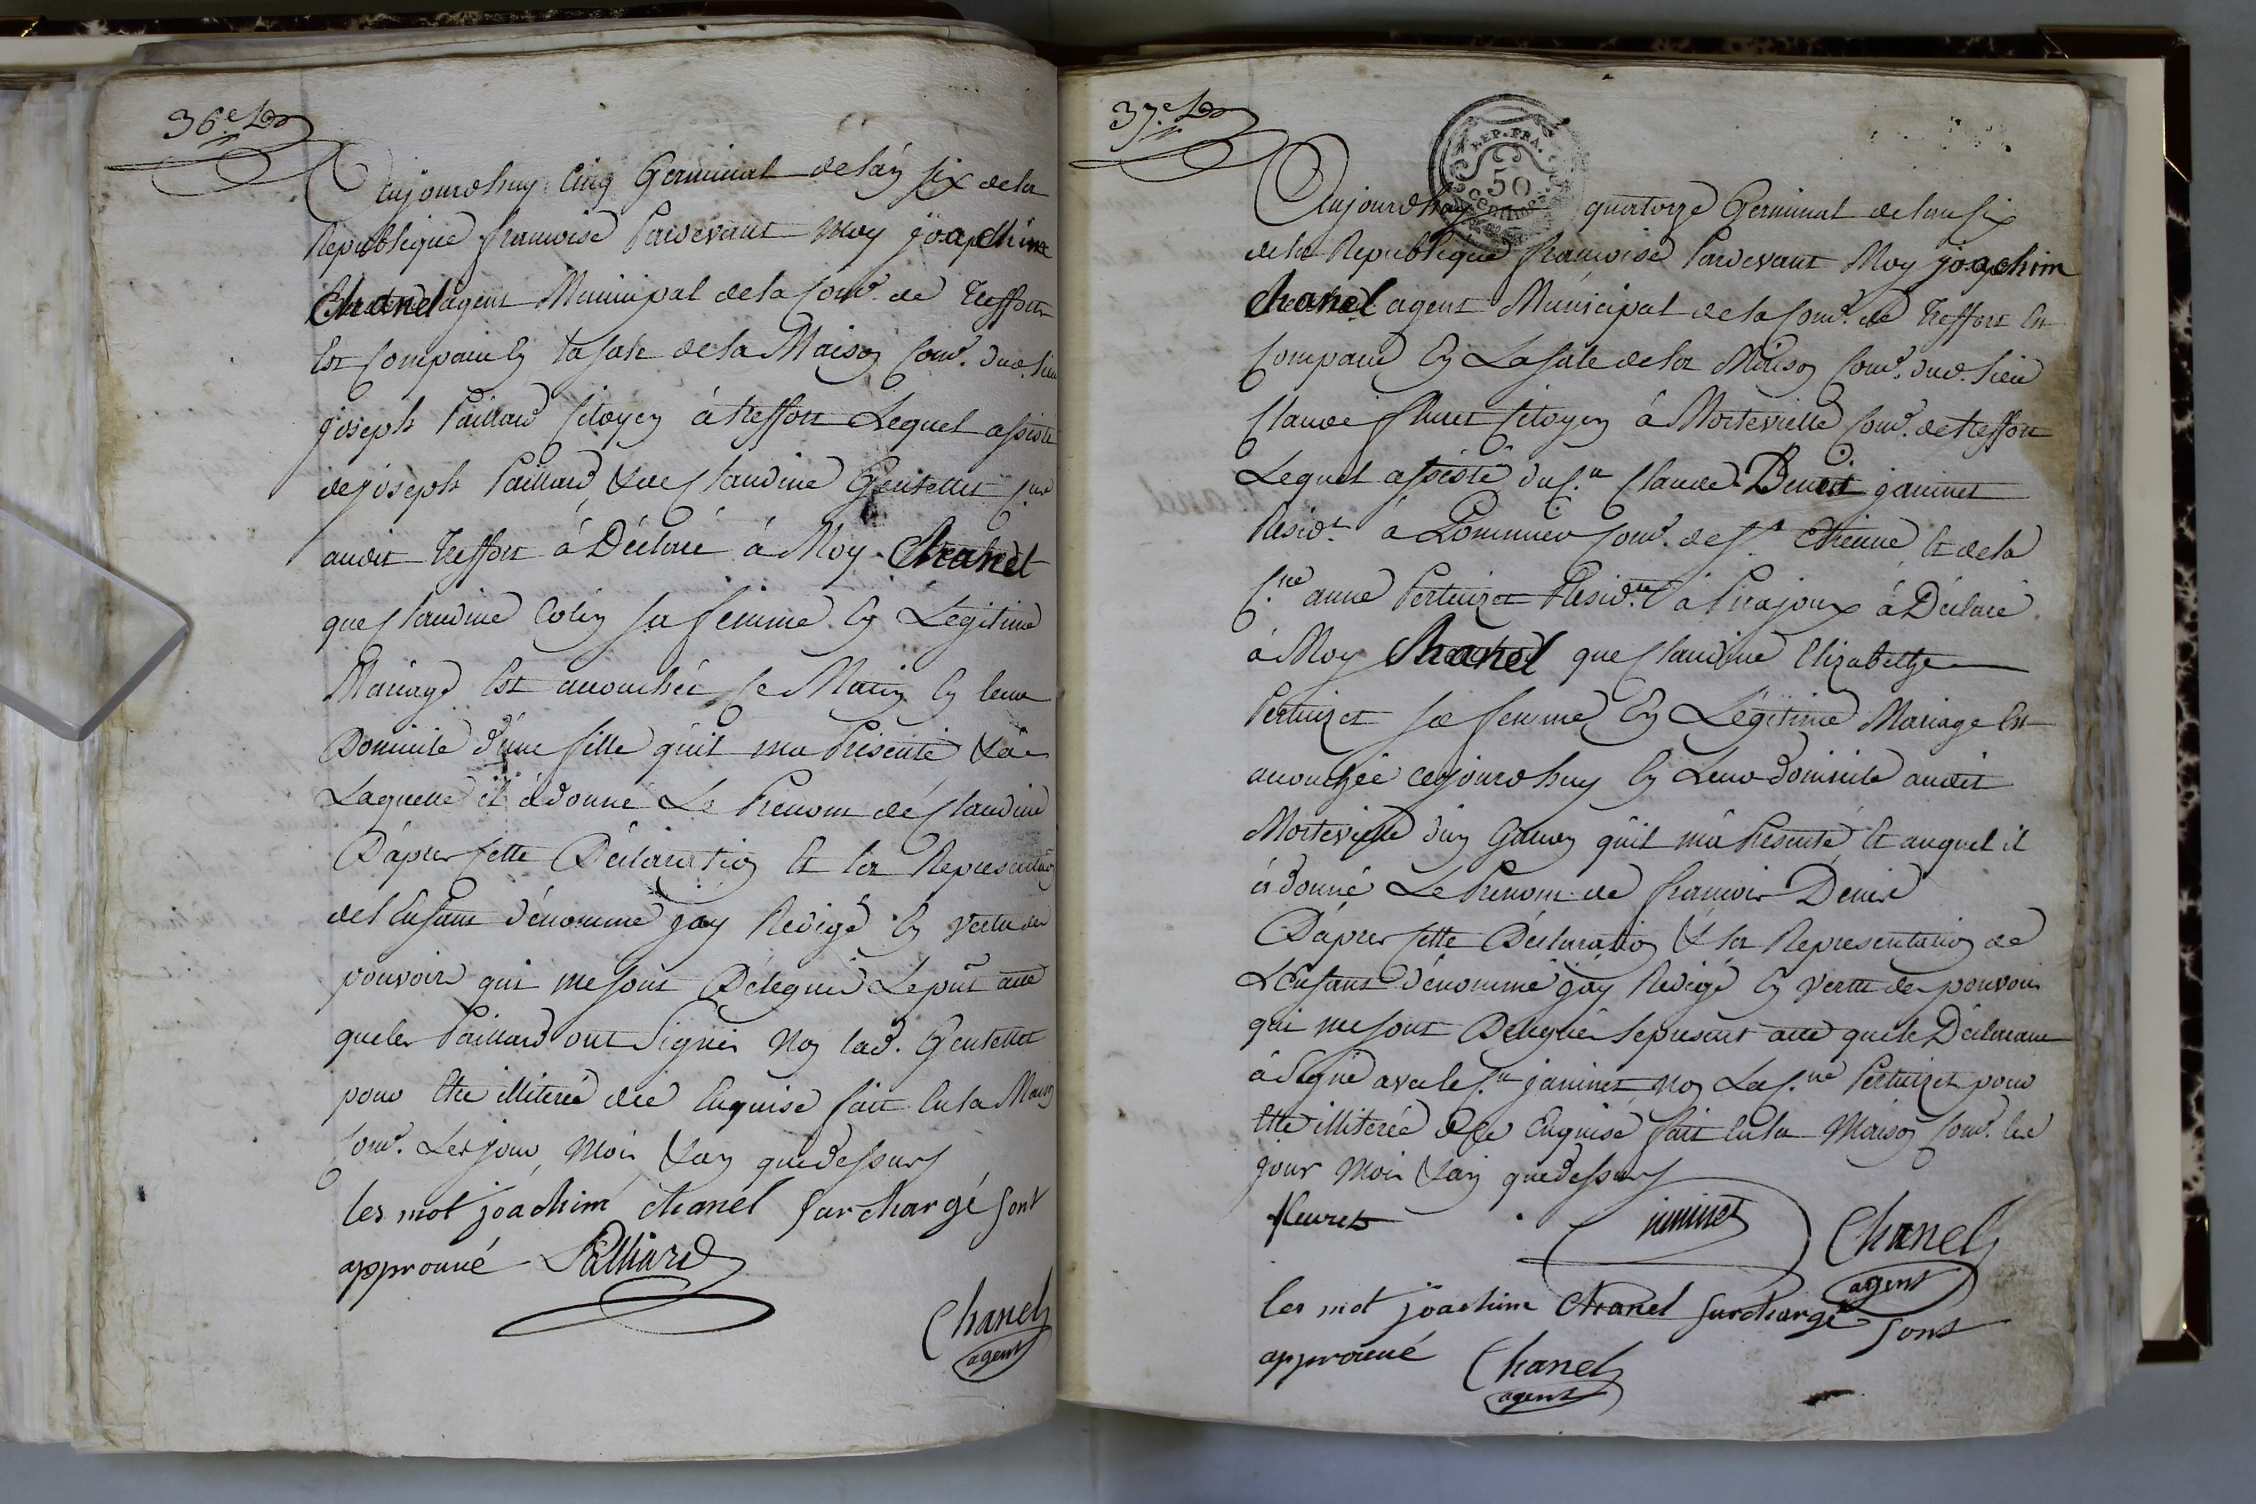 36.e
Aujourdhuy Cinq Germinal de lan six de la
Republique francoise Pardevant Moy joachim
Chanel agent Municipal de la Com.e de Treffort
Est Comparu En la sale de la Maison Com.e dud. lieu
joseph Paillard Citoyen á treffort Lequel assisté
de joseph Paillard & de Claudine Gentellet
audit Treffort á Déclaré á Moy Chanel
que Claudine Colin sa femme En Légitime
Mariage Est accouchée Ce Matin En leur
Domicile d'une fille quil ma Présenté & á
Laquelle il á donné Le Prenom dé Claudine
D'áprer cette Déclaration Et la Representation
de lEnfant dénommé jáy Redigé En Vertu der
pouvoir qui me sont Délegués Le pnt acte
que les Paillard ont Signés Non lad. Gentellet
pour Etre illiterée de ce Enquise fait En la Maison
Com.e Les jour, Mois & an que dessus
les mot joáchim chanel surchargé sont
approuué Palliard
Chanel
agent
37.e
REP. FRA.
50
Aujourdhuy quatorze Germinal de lan six
de la Republique francoise Pardevant Moy joachim
Chanel agent Municipal de la Com.e de Treffort Est
Comparu En La sale de la Maison Com.e dud. lieu
Claude fluret Citoyen á Montevielle Com.e de treffort
Lequel assisté du C.en Claude Denis janinet
Resid.t á Pommier Com.e de S.t Etienne, Et de la
C.ne anne Pertuizet Resid.te á Pirajoux á Déclaré
á Moy Chanel que Claudine Elizabethe
Pertuizet sa femme En Légitime Mariage Est
accouchée cejourdhuy En Leur domicile audit
Montevielle d'un Garcon quil má Présenté, Et auquel il
á donné Le Prenom de francois Denis
D'áprer cette Déclaration & la Representation de
LEnfant dénommé jáy Redigé En Vertu der pouvoir
qui me sont Délegués le present acte que le Déclarant
á Signé avec le C.en janinet Non La C.ne Pertuizet pour
Etre illiterée de ce Enquise fait En la Maison Com.e les
jour Mois & an que dessus
fleuret janinet Chanel
agent
les mot joachim Chanel surchargé sont
approuué Chanel
agent